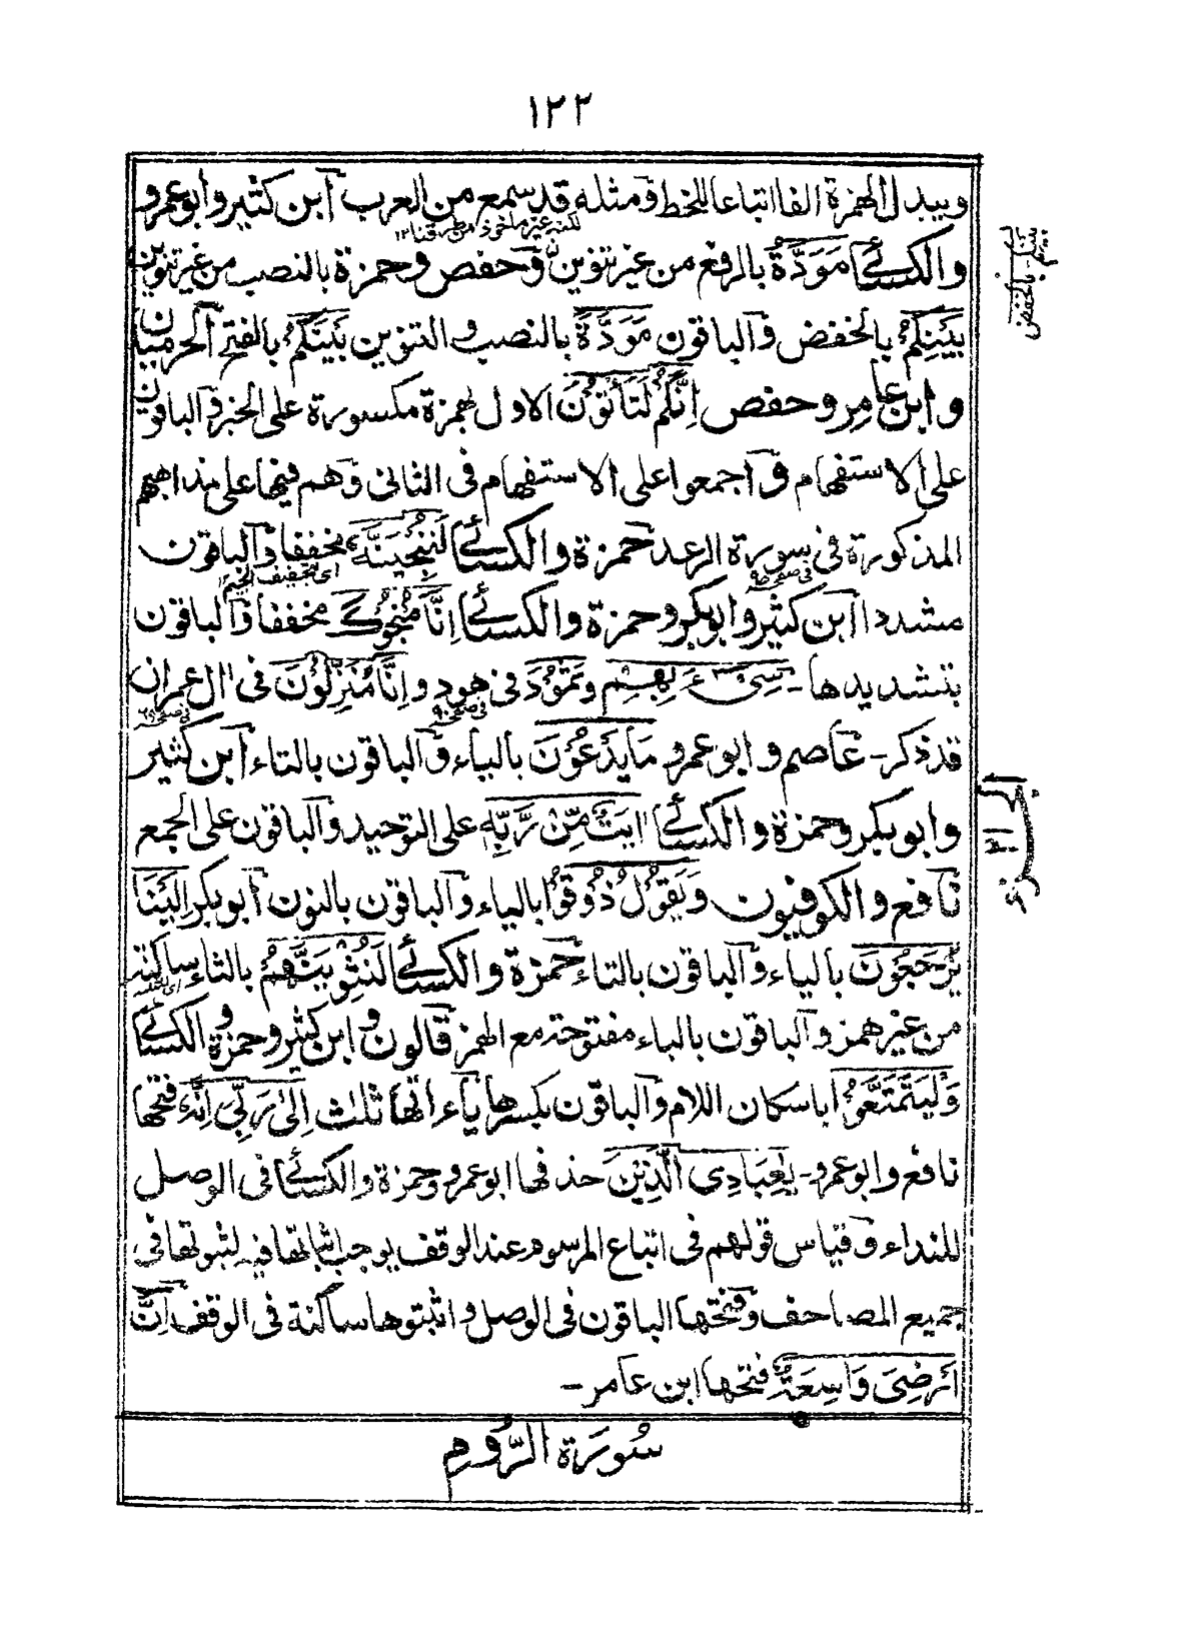 ١٢٢
ويبدل الهمزة الفا اتباعا للخط ومثله قد سمع من العرب ابن كثير وابو عمرو
لكنه غير ماخوذ من طرقنا ١٢
والكسائى مَوَدَّةُ بالرفع من غير تنوين وحفص وحمزة بالنصب من غير تنوين
بَيْنِكُمْ بالخفض والباقون مَوَدَّةً بالنصب والتنوين بَيْنَكُمْ بالفتح الحرميان
بينكم بالخفض
وابن عامر وحفص اِنَّكُمْ لَتَأْتُوْنَ الاول بهمزة مكسورة على الخبر والباقون
على الاستفهام واجمعوا على الاستفهام فى الثانى وهم فيهما على مذاهبهم
المذكورة فى سورة الرعد حمزة والكسائى لَنُنْجِيَنَّهٗ مخففا والباقون
فى صفحة
اى بتخفيف الجيم
مشددا ابن كثير وابو بكر وحمزة والكسائى اِنَّا مُنَجُّوْكَ مخففا والباقون
بتشديدها - سِىْٓءَ بِهِمْ وثَمُوْدَ فى هود و اِنَّا مُنْزِلُوْنَ فى اٰل عمران
فى صفحة
فى صفحة
قد ذكر - عاصم وابو عمرو مَا يَدْعُوْنَ بالياء والباقون بالتاء ابن كثير
الجزء ٢١
وابو بكر وحمزة والكسائى اٰيَتٌ مِّنْ رَّبِّهٖ على التوحيد والباقون على الجمع
نافع والكوفيون وَيَقُوْلُ ذُوْقُوْا بالياء والباقون بالنون ابو بكر اِلَيْنَا
يُرْجَعُوْنَ بالياء والباقون بالتاء حمزة والكسائى لَنُثْوِيَنَّهُمْ بالثاء ساكنة
من غير همز والباقون بالباء مفتوحة مع الهمز قالون وابن كثير وحمزة والكسائى
وَلْيَتَمَتَّعُوْا باسكان اللام والباقون بكسرها ياءاتها ثلث اِلٰى رَبِّىْ اِنَّهٗ فتحها
نافع وابو عمرو - يٰعِبَادِىَ الَّذِيْنَ حذفها ابو عمرو وحمزة والكسائى فى الوصل
للنداء وقياس قولهم فى اتباع المرسوم عند الوقف يوجب اثباتها فيه لثبوتها فى
جميع المصاحف وفتحها الباقون فى الوصل واثبتوها ساكنة فى الوقف اِنَّ
اَرْضِىَ وَاسِعَةٌ فتحها ابن عامر -
سُورَة الرُّومِ